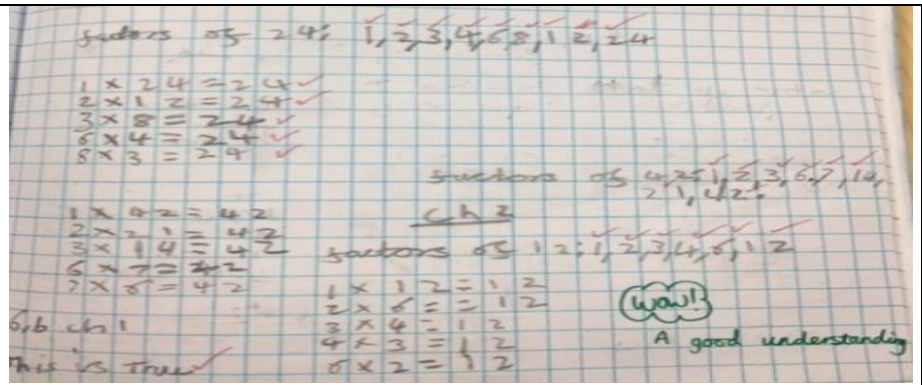 factors of 24: 1,2,3,4,6,8,12,24
1 × 24 = 24
2 × 12 = 24
3 × 8 = 24
6 × 4 = 24
8 × 3 = 24
factors of 42: 1,2,3,6,7,14,
21,42.
1 × 42 = 42
2 × 21 = 42
3 × 14 = 42
6 × 7 = 42
7 × 6 = 42
ch 2
factors of 12: 1,2,3,4,6,12
1 × 12 = 12
2 × 6 = = 12
3 × 4 = 12
4 × 3 = 12
6 × 2 = 12
6,b ch 1
This is True
Wow!
A good understanding